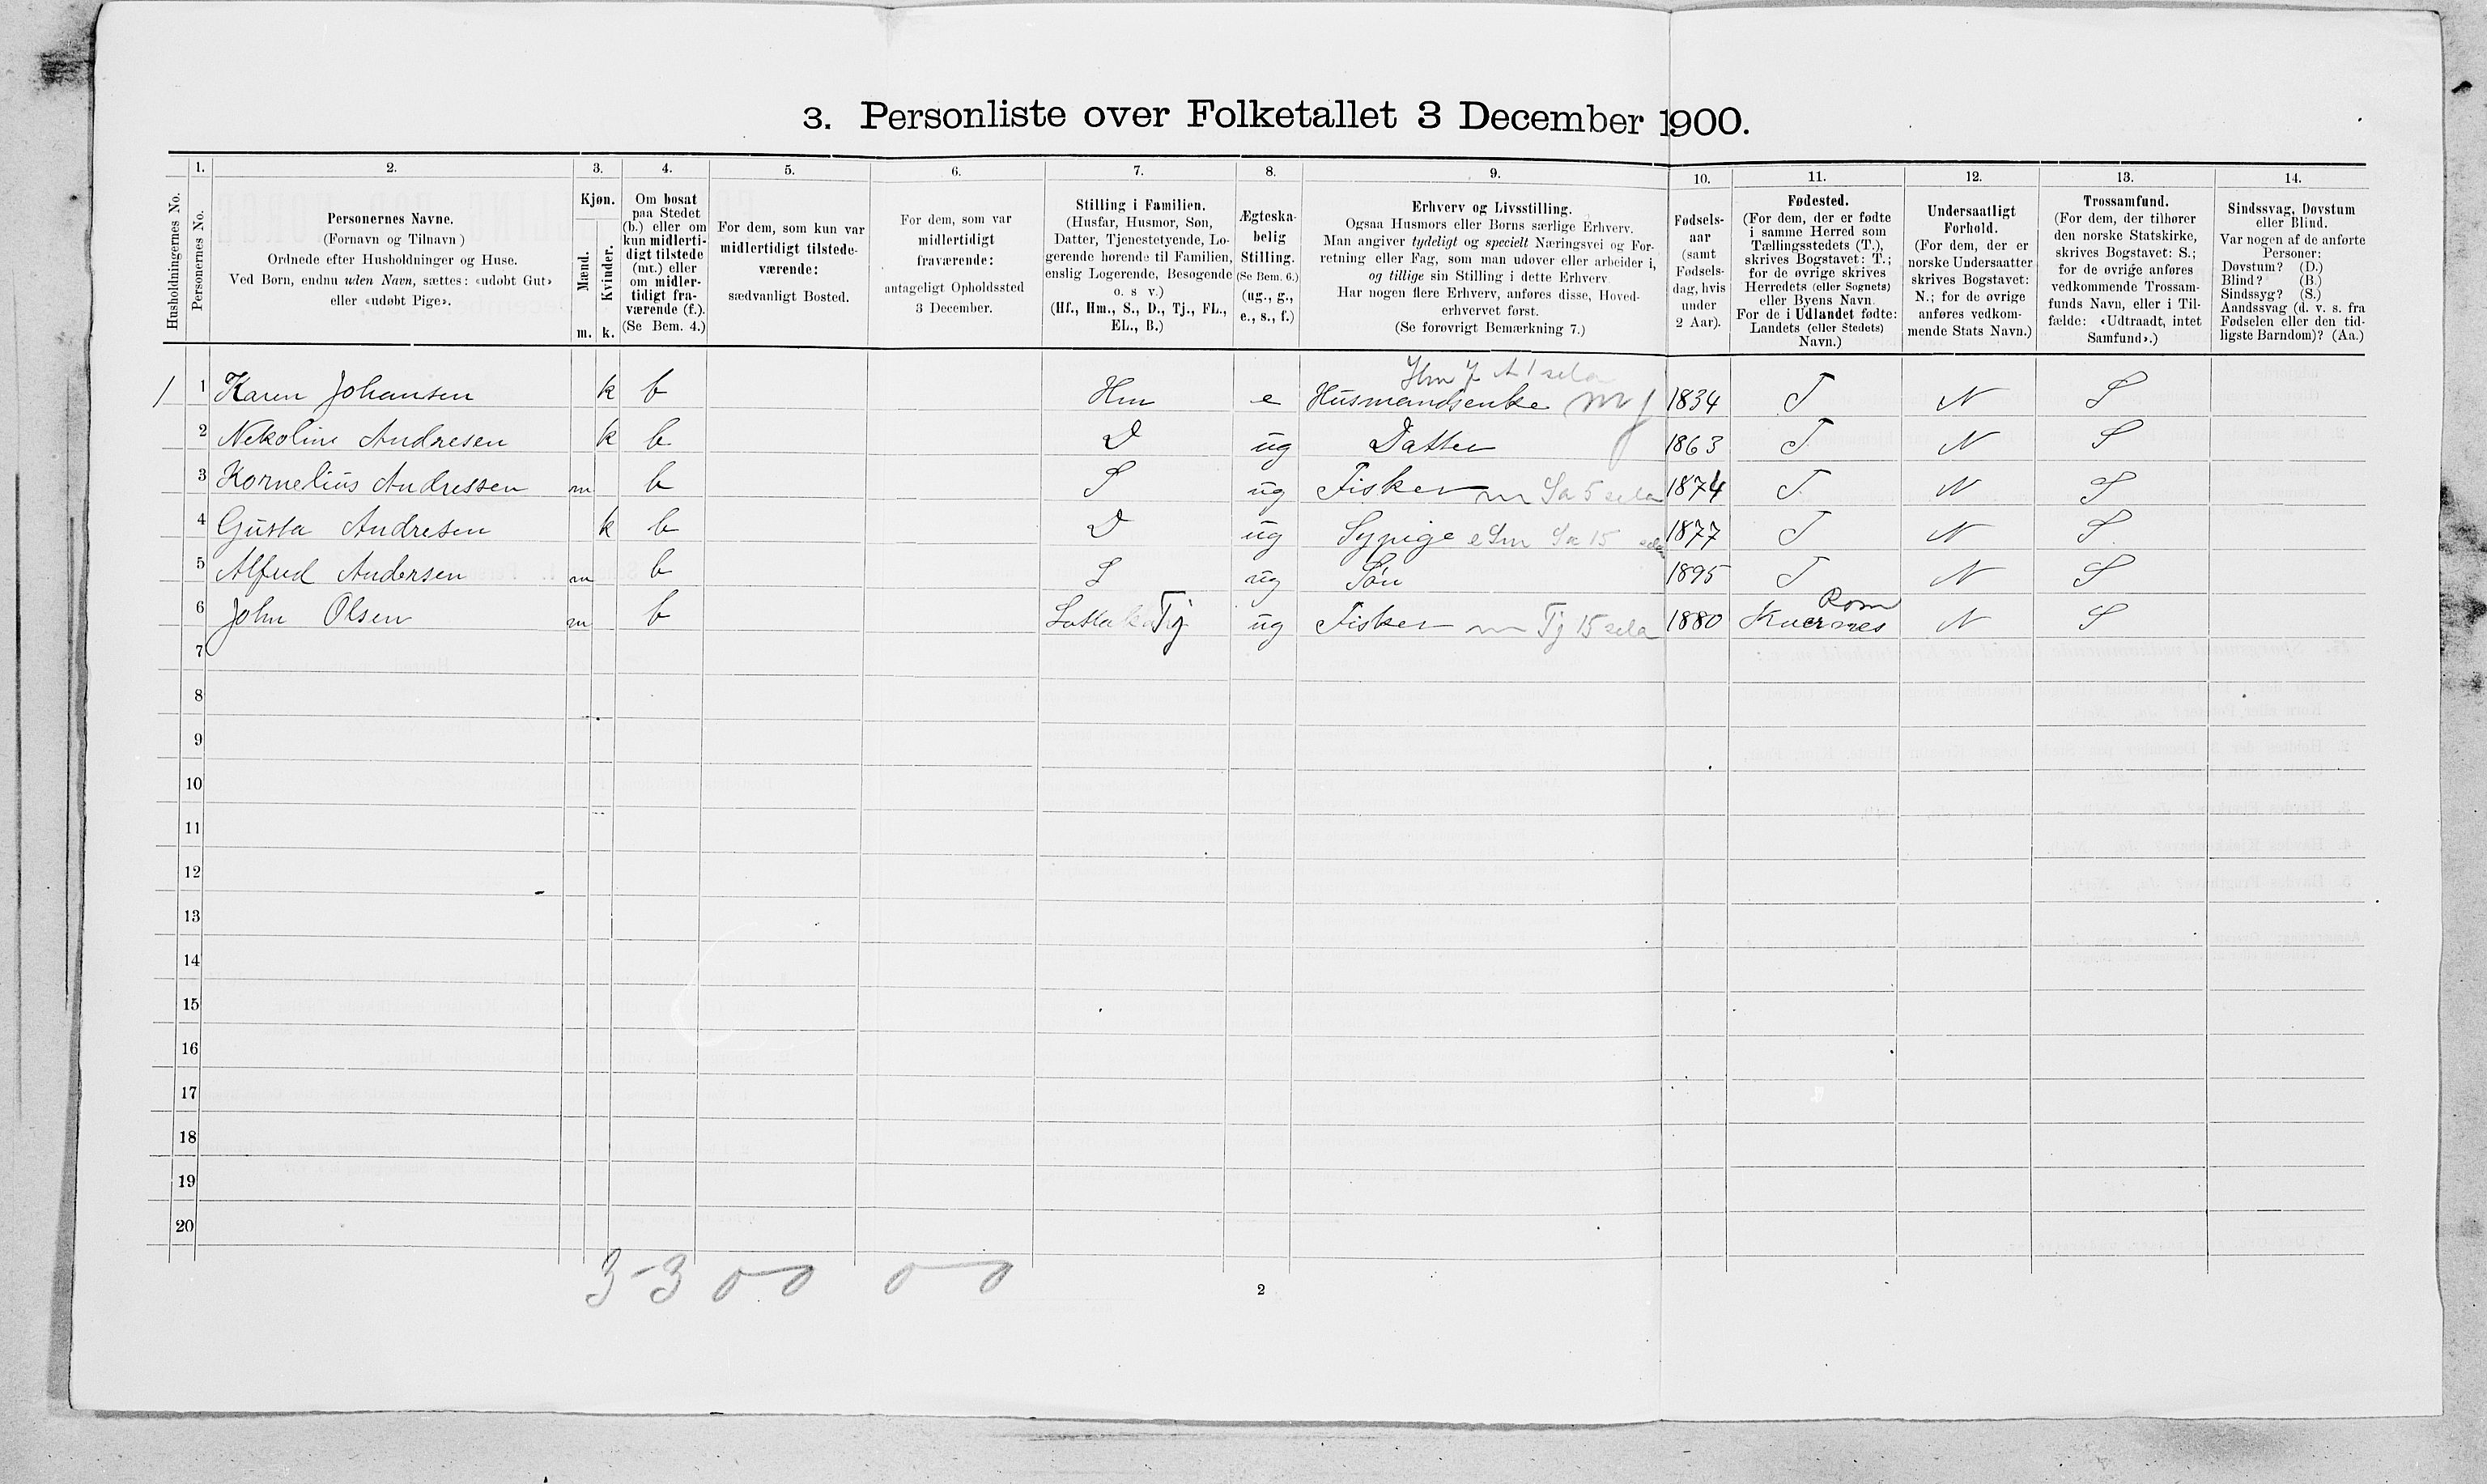 3. Personliste over Folketallet 3 December 1900.
1. 2. 3. 4. 5. 6. 7. 8. 9. 10. 11. 12. 13. 14.
Husholdningernes No.
Personernes No.
Personernes Navne.
(Fornavn og Tilnavn)
Ordnede efter Husholdninger og Huse.
Ved Børn, endnu uden Navn, sættes: «udøbt Gut»
eller «udøbt Pige».
Kjøn.
Mænd.
Kvinder.
m. k.
Om bosat
paa Stedet
(b.) eller om
kun midlerti-
digt tilstede
(mt.) eller
om midler-
tidigt fra-
værende (f.).
(Se Bem. 4.)
For dem, som kun var
midlertidigt tilstede-
værende:
sædvanligt Bosted.
For dem, som var
midlertidigt
fraværende:
antageligt Opholdssted
3 December.
Stilling i Familien.
(Husfar, Husmor, Søn,
Datter, Tjenestetyende, Lo-
gerende hørende til Familien,
enslig Logerende, Besøgende
o. s v.)
(Hf., Hm., S., D., Tj., FL.,
EL., B.)
Ægteska-
belig
Stilling.
(Se Bem. 6.)
(ug., g.,
e., s., f.)
Erhverv og Livsstilling.
Ogsaa Husmors eller Børns særlige Erhverv.
Man angiver tydeligt og specielt Næringsvei og For-
retning eller Fag, som man udøver eller arbeider i,
og tillige sin Stilling i dette Erhverv
Har nogen flere Erhverv, anføres disse, Hoved-
erhvervet først.
(Se forøvrigt Bemærkning 7.)
Fødsels-
aar
(samt
Fødsels-
dag, hvis
under
2 Aar).
Fødested.
(For dem, der er fødte
i samme Herred som
Tællingsstedets (T.),
skrives Bogstavet: T.;
for de øvrige skrives
Herredets (eller Sognets)
eller Byens Navn.
For de i Udlandet fødte:
Landets (eller Stedets)
Navn.)
Undersaatligt
Forhold.
(For dem, der er
norske Undersaatter
skrives Bogstavet:
N.; for de øvrige
anføres vedkom-
mende Stats Navn.)
Trossamfund.
(For dem, der tilhører
den norske Statskirke,
skrives Bogstavet: S.;
for de øvrige anføres
vedkommende Trossam-
funds Navn, eller i Til-
fælde: «Udtraadt, intet
Samfund».)
Sindssvag, Døvstum
eller Blind.
Var nogen af de anførte
Personer:
Døvstum? (D.)
Blind? (B.)
Sindssyg? (S.)
Aandssvag (d. v. s. fra
Fødselen eller den tid-
ligste Barndom)? (Aa.)
1 1 Karen Johansen k b Hm e Husmandsenke 1834 T N S
2 Nekoline Andresen k b D ug Datter 1863 T N S
3 Kornelius Andressen m b S ug Fisker m Sa 5 sela 1874 T N S
4 Gusta Andresen k b D ug Sypige Sa 15 1877 T N S
5 Alfred Andersen m b S ug Søn 1895 T N S
6 John Olsen m b Tj ug Fisker m Tj 15 sela 1880 N S
7
8
9
10
11
12
13
14
15
16
17
18
19
20
3-3 0 0 0 0
2